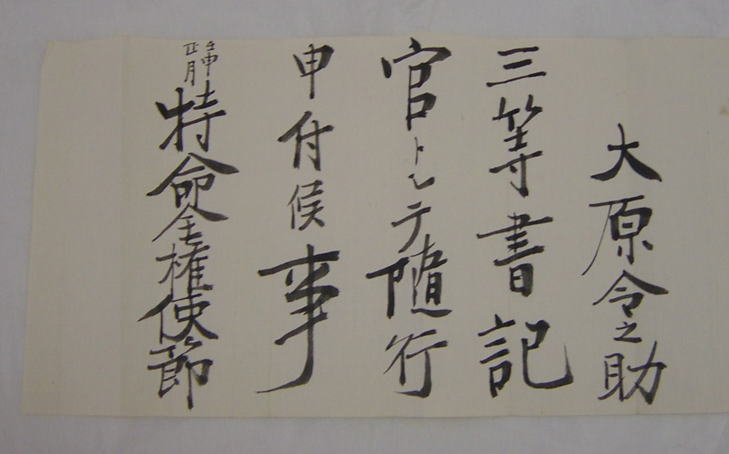 大原令之助
三等書記
官トシテ随行
申付候事
壬申正月 特命全権使節